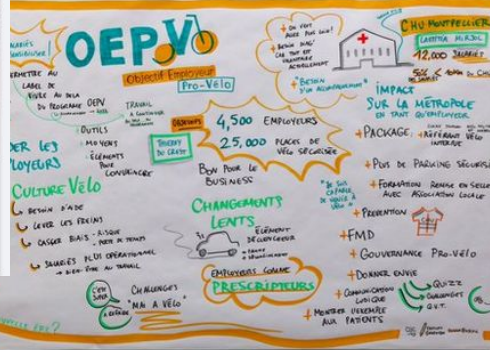 OEPV
Objectif Employeur
Pro-Vélo
PERMETTRE AU
LABEL DE
VIVRE AU DELÀ
DU PROGRAMME OEPV
TRAVAIL
OUTILS
MOYENS
ÉLÉMENTS
POUR
CONVAINCRE
CULTURE VÉLO
BESOIN D'AIDE
LEVER LES FREINS
CASSER BIAIS - RISQUE
PERTE DE TEMPS
SALARIÉS PLUS OPÉRATIONNEL
BIEN-ÊTRE AU TRAVAIL
CHALLENGES
"MAI À VÉLO"
4,500 EMPLOYEURS
25,000 PLACES DE
VÉLO SÉCURISÉE
BON POUR LE
BUSINESS
CHANGEMENTS
LENTS
ÉLÉMENT
DÉCLENCHEUR
EMPLOYEURS COMME
PRESCRIPTEURS
+ BESOIN
D'UN ACCOMPAGNEMENT
CHU MONTPELLIER
12,000 SALARIÉS
IMPACT
SUR LA MÉTROPOLE
EN TANT QU'EMPLOYEUR
+ PACKAGE
+ RÉFÉRENT VÉLO
INTERNE
+ PLUS DE PARKING SÉCURISÉ
+ FORMATION REMISE EN SELLE
AVEC ASSOCIATION LOCALE
"JE SUIS
CAPABLE
DE VENIR À
VÉLO"
+ PREVENTION
+ FMD
+ GOUVERNANCE PRO-VÉLO
+ DONNER ENVIE
+ COMMUNICATION
LUDIQUE
QUIZZ
CHALLENGES
Q.V.T.
+ MONTRER L'EXEMPLE
AUX PATIENTS